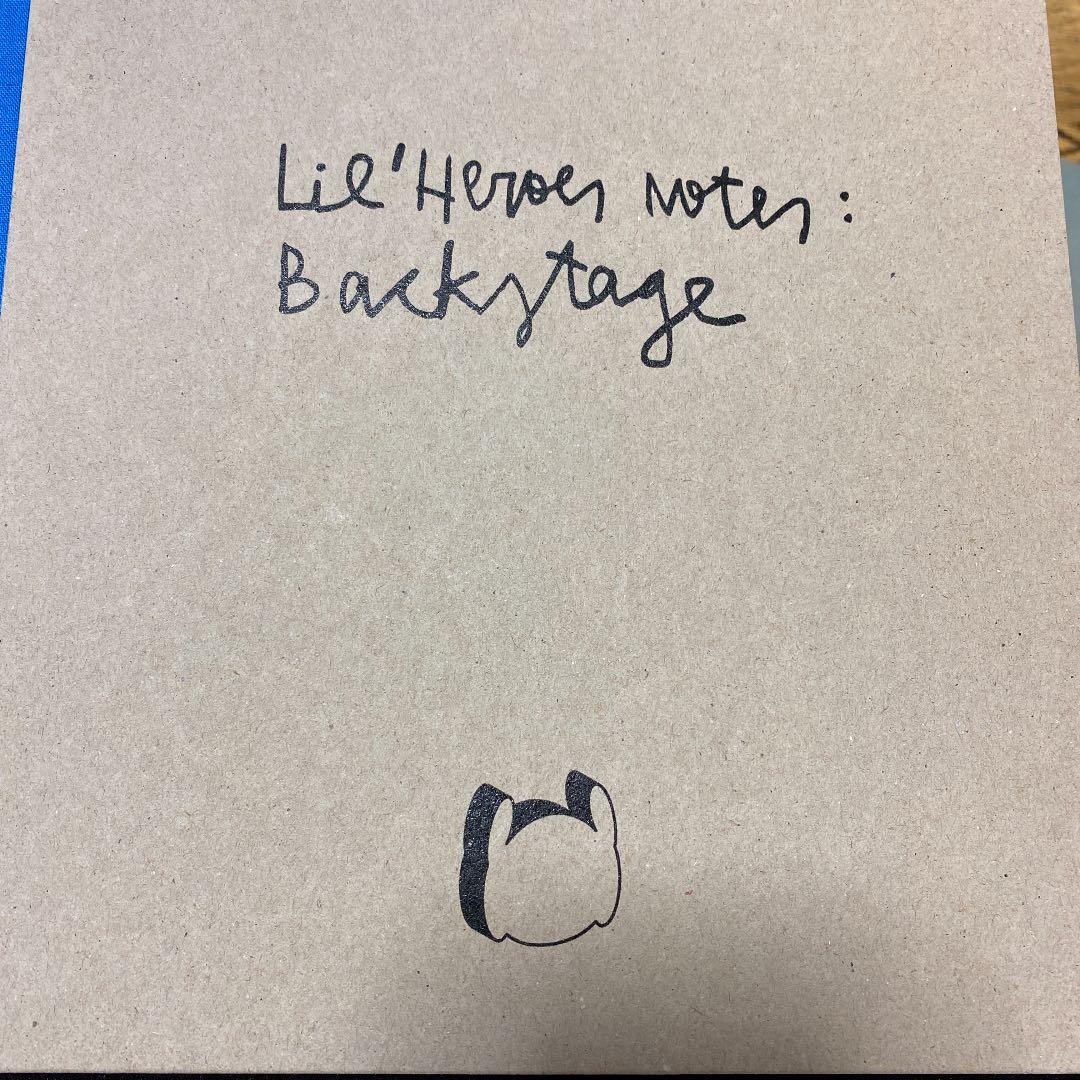 Lil' Heroes Notes:
Backstage